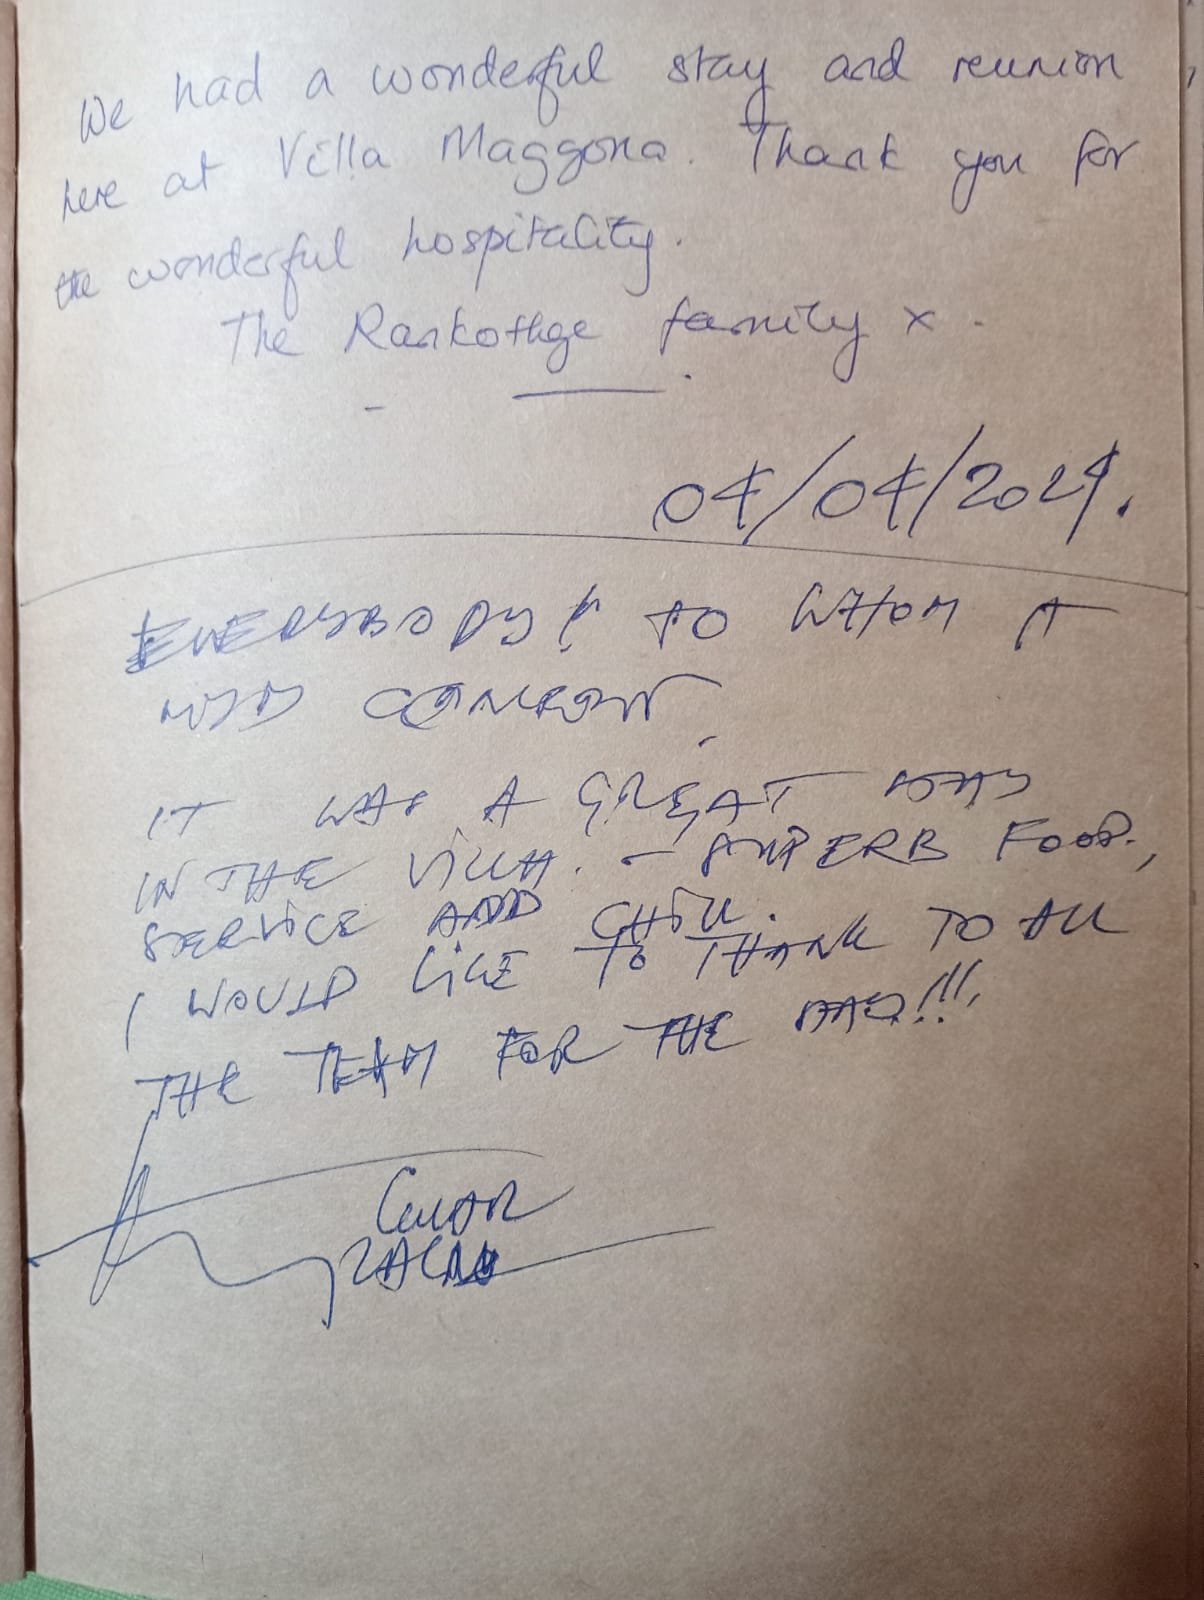 We had a wonderful stay and reunion
here at Villa Maggona. Thank you for
the wonderful hospitality.
The Rankothge family x.
04/04/2024.
EVERYBODY & TO WHOM IT
MAY CONCERN,
IT WAS A GREAT STAY
IN THE VILLA. - SUPERB FOOD,
SERVICE AND CHILL.
I WOULD LIKE TO THANK TO ALL
THE TEAM FOR THE STAY!!!,